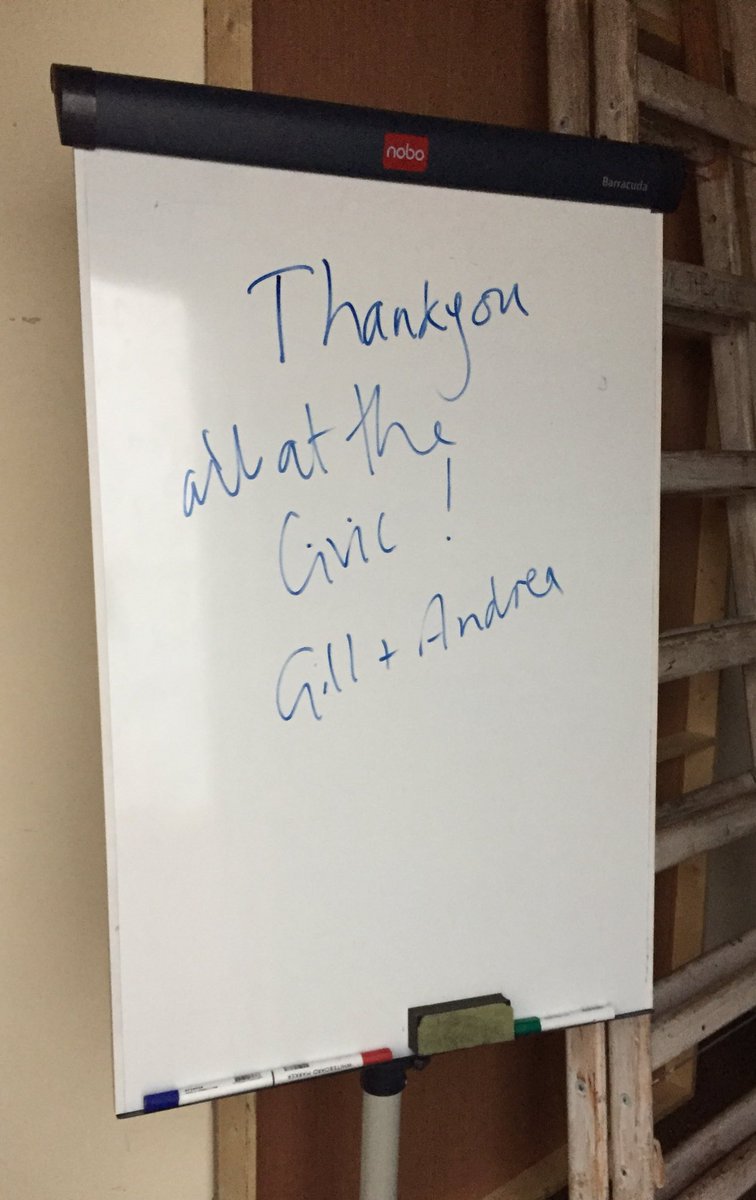 nobo
Barracuda
Thankyou
all at the
Civic !
Gill + Andrea
WHITEBOARD MARKER